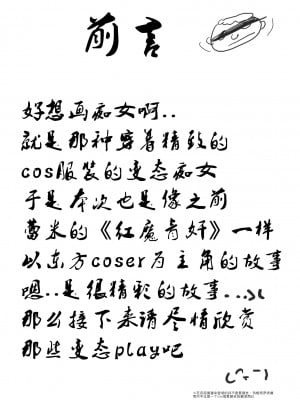 前言
好想画痴女啊..
就是那种穿着精致的
cos服装的变态痴女
于是本次也是像之前
蕾米的《红魔肯奸》一样
以东方coser为主角的故事
嗯..是很精彩的故事...
那么接下来请尽情欣赏
那些变态play吧